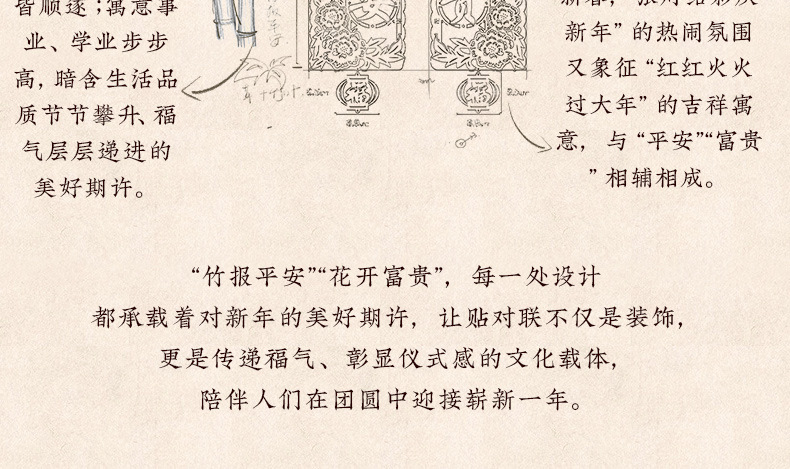 皆顺遂；寓意事
业、学业步步
高，暗含生活品
质节节攀升、福
气层层递进的
美好期许。
新年”的热闹氛围
又象征“红红火火
过大年”的吉祥寓
意，与“平安”“富贵
”相辅相成。
“竹报平安”“花开富贵”，每一处设计
都承载着对新年的美好期许，让贴对联不仅是装饰，
更是传递福气、彰显仪式感的文化载体，
陪伴人们在团圆中迎接崭新一年。